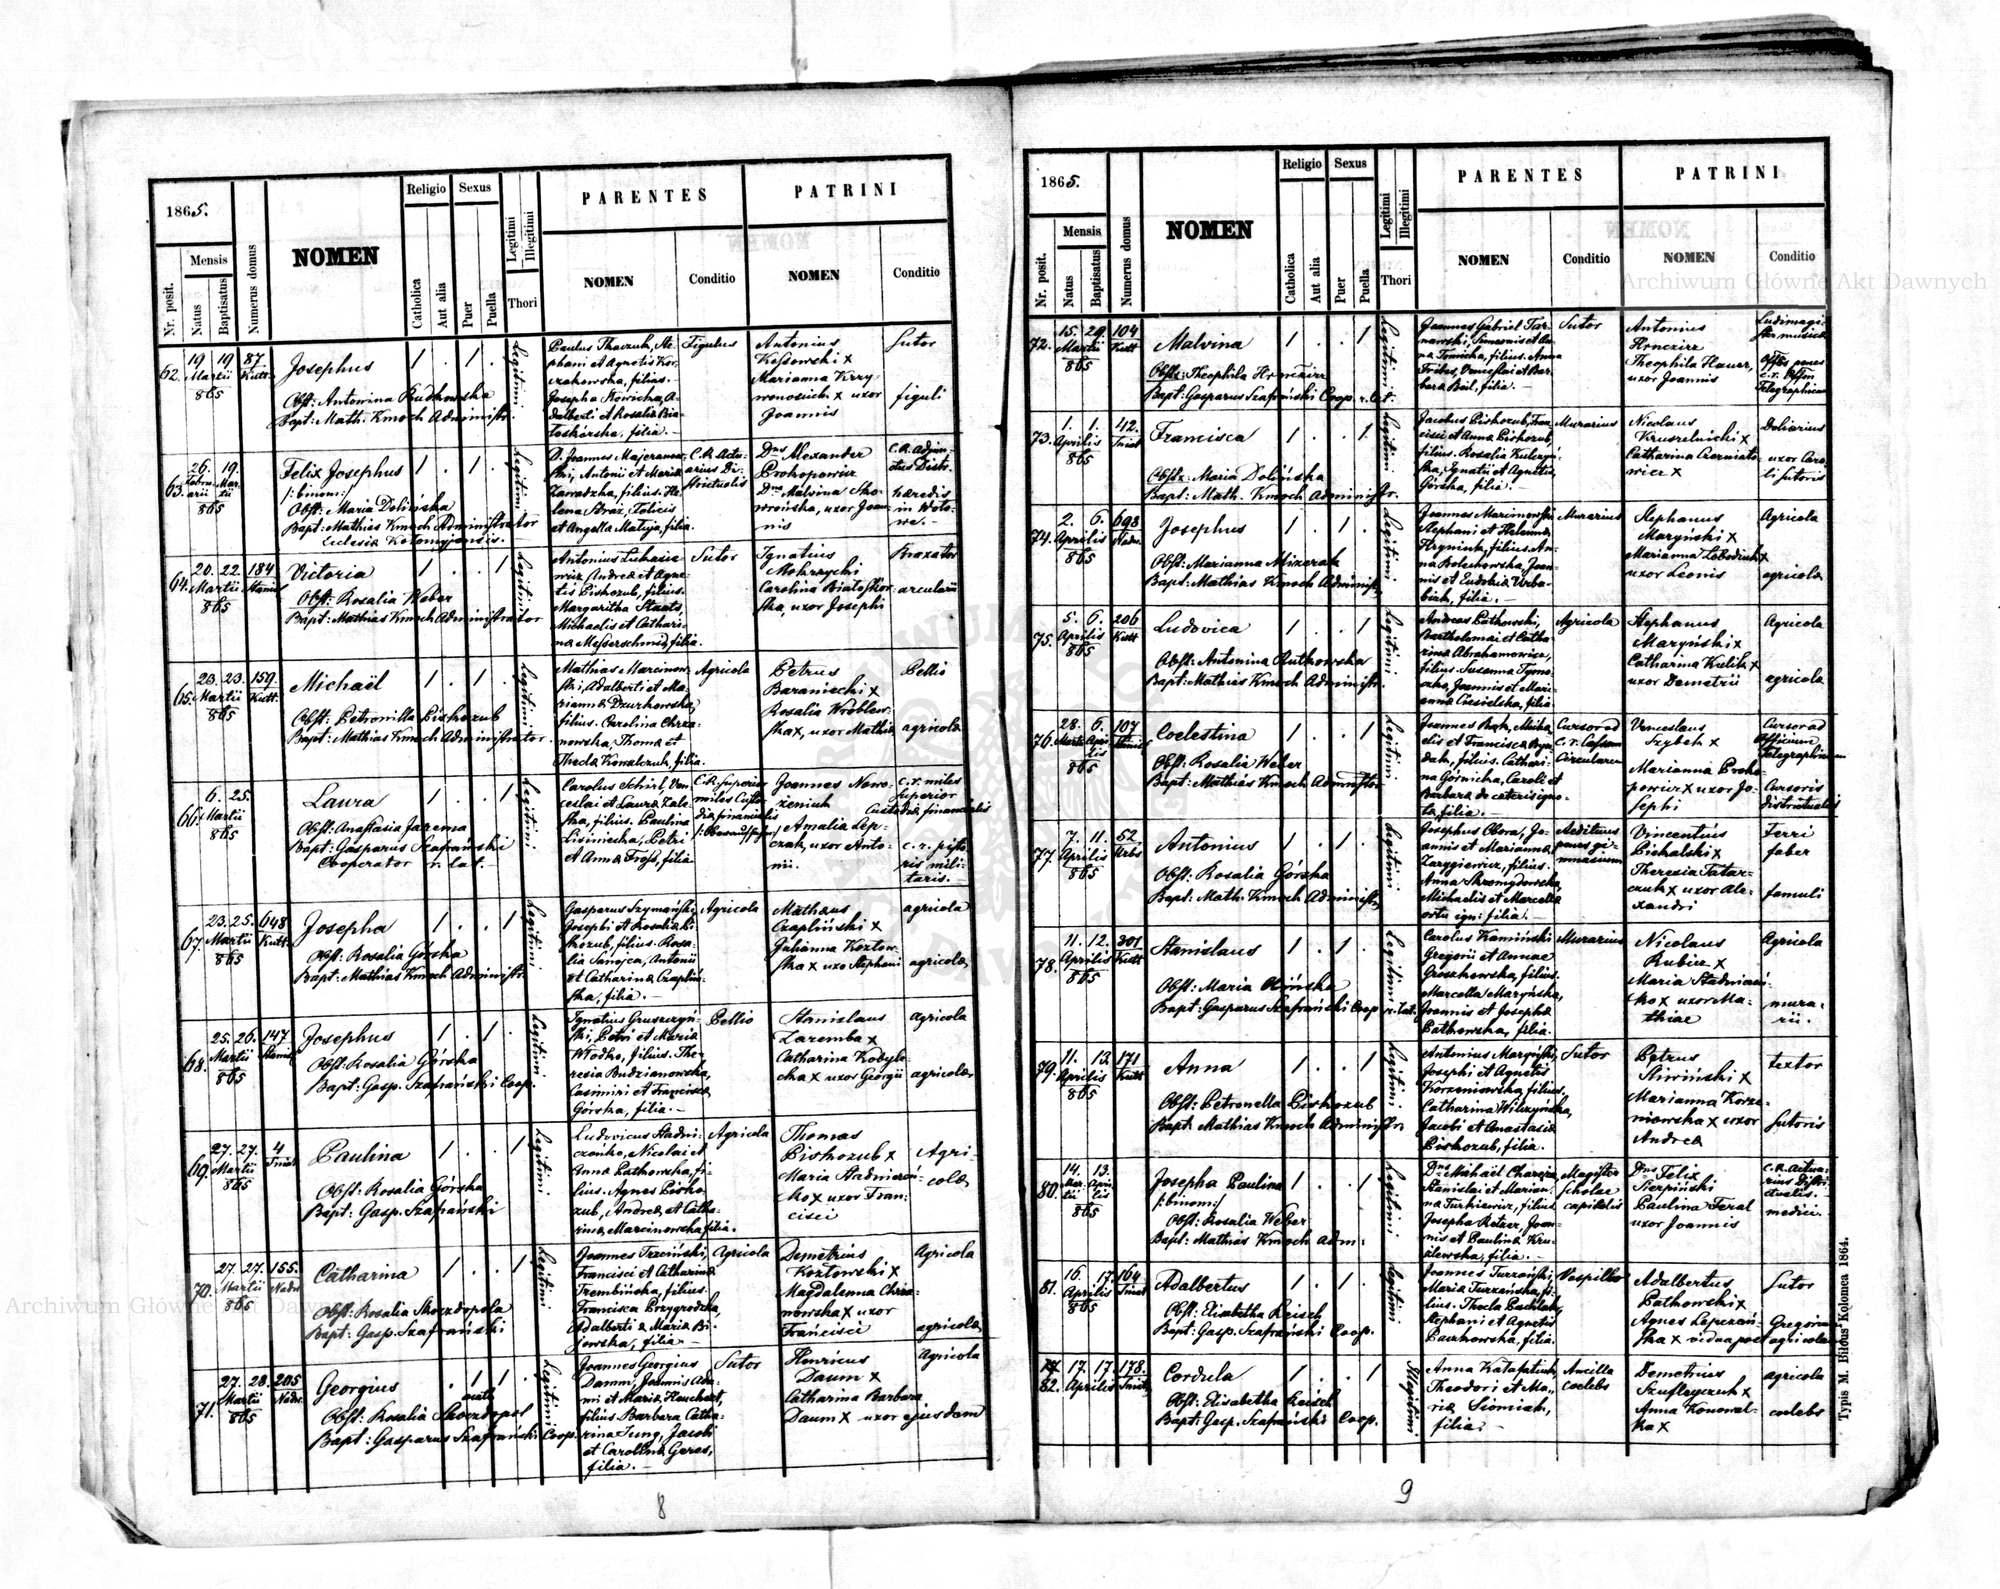 1865.
Nr. posit.
Mensis
Natus
Baptisatus
Numerus domus
NOMEN
Religio
Catholica
Aut alia
Sexus
Puer
Puella
Legitimi
Illegitimi
Thori
PARENTES
NOMEN
Conditio
PATRINI
NOMEN
Conditio
62. 19 19 87
Martii Kutt.
865
Josephus 1 . 1 .
Legitimi
Obst: Antonina Rudkowska
Bapt: Math. Kmoch Administr.
Paulus Tkaczuk, Ste-
phani et Agnetis Kor-
czakowska, filius.
Josepha Słowicka, A-
dalberti et Rosalia Bia-
łoskórska, filia. —
Figulus
Antonius
Kossowski x
Marianna Krzy-
wonosiuk x uxor
Joannis
Sutor
figuli
63. 26. 19.
Febru- Mar-
arii tii
865
Felix Josephus 1 . 1 .
/:binom:/
Legitimi
Obst: Maria Dolińska
Bapt: Mathias Kmoch Administrator
Ecclesiæ Kolomyjensis. —
D. Joannes Majeranow-
ski, Antonii et Maria
Zawadzka, filius. He-
lena Straz, Felicis
et Angella Matyja, filia.
C.R. Actu-
arius Di-
strictualis
Dnus Alexander
Prokopowicz
Dna Malvina Sko-
wrońska, uxor Joan-
nis
C.R. Adjun-
ctus Distr.
haredis
in Woło-
we. —
64. 20. 22. 184
Martii Stanis
865
Victoria 1 . . 1
Legitimi
Obst: Rosalia Weber
Bapt: Mathias Kmoch Administrator
Antonius Lukasie-
wicz, Andreæ et Agne-
tis Piskozub, filius.
Margaritha Staats,
Michaelis et Cathari-
na Messerschmid, filia.
Sutor
Ignatius
Mokrzycki
Carolina Białoskór-
ska, uxor Josephi
Braxator
arcularii
65. 23. 23. 159
Martii Kutt.
865
Michaël 1 . 1 .
Legitimi
Obst: Petronilla Piskozub
Bapt: Mathias Kmoch Administrator.
Mathias Marcinow-
ski, Adalberti et Ma-
rianna Dzurkowska,
filius. Carolina Chrza-
nowska, Thomæ et
Thecla Kowalczuk, filia.
Agricola
Petrus
Baraniecki x
Rosalia Wroblew-
ska x, uxor Mathiæ
Pellio
agricolæ
66. 6. 25.
Martii
865
Laura 1 . . 1
Legitimi
Obst: Anastasia Jarema
Bapt: Gasparus Szafrański
Cooperator r. lat. —
Carolus Schirl, Ven-
ceslai et Laura Zale-
ska, filius. Paulina
Lisiniecka, Petri
et Anna Trofs, filia
C.R. Superior
miles Custo-
diæ financialis
Joannes Nowo-
zeniuk
Amalia Lep-
czak, uxor Anto-
nii.
C.r. miles
superior
Custodiæ financialis
c. r. pisto-
ris mili-
taris. —
67. 23. 25. 648
Martii Kutt.
865
Josepha 1 . . 1
Legitimi
Obst: Rosalia Górska
Bapt: Mathias Kmoch Administr.
Gasparus Szymański,
Josephi et Rosalia Pi-
skozub, filius. Rosa-
lia Sanojca, Antonii
et Catharina Czapliń-
ska, filia. —
Agricola
Mathæus
Czapliński x
Julianna Kozłow-
ska x uxor Stephani
agricola
agricolæ
68. 25. 26. 147
Martii Stanis
865
Josephus 1 . 1 .
Legitimi
Obst: Rosalia Górska
Bapt: Gasp. Szafrański Coop.
Ignatius Gruszczyń-
ski, Petri et Maria
Wlodko, filius. The-
resia Budzianowska,
Casimiri et Francisca
Górska, filia. —
Pellio
Stanislaus
Zaremba x
Catharina Kobyle-
cka x uxor Georgii
agricola
agricolæ
69. 27. 27. 4
Martii Sniat
865
Paulina 1 . . 1
Legitimi
Obst: Rosalia Górska
Bapt: Gasp. Szafrański
Ludovicus Stadni-
czenko, Nicolai et
Anna Patkowska, fi-
lius. Agnes Pisko-
zub, Andreæ et Catha-
rina Marcinowska filia.
Agricola
Thomas
Piskozub x
Maria Stadniczeń-
ko x uxor Fran-
cisci
Agri-
colæ
70. 27. 27. 155.
Martii Nadw
865
Catharina 1 . . 1
Legitimi
Obst: Rosalia Skoczdopola
Bapt: Gasp. Szafrański
Joannes Trzciński,
Francisci et Catharina
Trembińska, filius.
Francisca Przygrodzka,
Adalberti & Maria Bi-
jowska, filia —
Agricola
Demetrius
Kozłowski x
Magdalenna Chrza-
nowska x uxor
Francisci
Agricola
agricolæ
71. 27. 28. 205
Martii Nadw.
865
Georgius . 1 1 .
Legitimi
Obst: Rosalia Skoczdopol
Bapt: Gasparus Szafrański Coop.
Joannes Georgius
Damm, Joannis Ada-
mi et Maria Hauchert,
filius Barbara Catha-
rina Jung, Jacobi
et Carolina Geres,
filia. —
Sutor
Henricus
Daum x
Catharina Barbara
Daum x uxor ejusdem
Agricola
8
1865.
Nr. posit.
Mensis
Natus
Baptisatus
Numerus domus
NOMEN
Religio
Catholica
Aut alia
Sexus
Puer
Puella
Legitimi
Illegitimi
Thori
PARENTES
NOMEN
Conditio
PATRINI
NOMEN
Conditio
72. 15. 20. 104
Martii Kutt
865
Malvina 1 . . 1
Legitimi
Obst: Theophila Hrnczirz
Bapt: Gasparus Szafrański Coop. r. lat.
Joannes Gabriel Tar-
nawski, Simeonis et An-
na Tomicka, filius. Anna
Fribes, Venceslai et Bar-
bara Beil, filia. —
Sutor
Antonius
Hrnczirz
Theophila Hauser,
uxor Joannis
Ludimagi-
ster musicæ
Telegraphicum
73. 1. 1. 42.
Aprilis Sniat
865
Francisca 1 . . 1
Legitimi
Obstx: Maria Dolińska
Bapt: Math. Kmoch Administr.
Jacobus Piskozub, Fran-
cisci et Anna Piskozub,
filius. Rosalia Kulczyń-
ska, Ignatii et Agnetis
Górska, filia. —
Murarius
Nicolaus
Kruszelnicki x
Catharina Czerniato-
wicz x
Doliarius
uxor Caro-
li sutoris
74. 2. 6. 698
Aprilis Nadw.
865
Josephus 1 . 1 .
Legitimi
Obst: Marianna Mizerak
Bapt: Mathias Kmoch Administr.
Joannes Marimowski
Stephani et Helenna
Hryniuk, filius. An-
na Bolechowska, Joan-
nis et Eudokia Verba-
biuk, filia. —
Murarius
Stephanus
Maryński x
Marianna Lebediuk x
uxor Leonis
Agricola
agricolæ
75. 5. 6. 206
Aprilis Kutt
865
Ludovica 1 . . 1
Legitimi
Obst: Antonina Rutkowska
Bapt: Mathias Kmoch Administr.
Andreas Patkowski,
Bartholomæi et Catha-
rina Abrahamowicz,
filius. Susanna Tymo-
czko, Joannis et Mari-
anna Ciesielska, filia
Agricola
Stephanus
Maryński x
Catharina Kulik x
uxor Demetrii
Agricola
agricolæ
76. 28. 6. 107
Martii Apri- Stanis
lis
865
Coelestina 1 . . 1
Legitimi
Obst: Rosalia Weber
Bapt: Mathias Kmoch Administr
Joannes Bąk, Micha-
elis et Francisca Byn-
dak, filius. Cathari-
na Górnicka, Caroli et
Barbara de cæteris igno-
ta, filia. —
Cursor ad
c. r. Cassam
Circularem
Venceslaus
Szybek x
Marianna Proko-
powicz x uxor Jo-
sephi
Cursor ad
Officium
Telegraphicum
Cursoris
districtualis
77. 7. 11. 52
Aprilis Urbs
865
Antonius 1 . 1 .
Legitimi
Obst: Rosalia Górska
Bapt: Math. Kmoch Administr,
Josephus Obora, Jo-
annis et Marianna
Zarygiewicz, filius.
Anna Skromydowska,
Michaelis et Marcella
ortu ign: filia. —
Aedituus
penes gi-
mnasium
Vincentius
Piekalski x
Theresia Tatar-
czuk x uxor Ale-
xandri
Ferri
faber
famuli
78. 11. 12. 301
Aprilis Kutt
865
Stanislaus 1 . 1 .
Legitimi
Obst: Maria Olińska
Bapt: Gasparus Szafrański Coop r. lat.
Carolus Kamiński
Gregorii et Annae
Groszkowska, filius.
Marcella Maryńska,
Joannis et Josepha
Patkowska, filia.
Murarius
Nicolaus
Rubicz x
Maria Stadniczeń-
ko x uxor Ma-
thiae
Agricola
mura-
rii.
79. 11. 13. 171
Aprilis Kutt
865
Anna 1 . . 1
Legitimi
Obst: Petronella Piskozub
Bapt: Mathias Kmoch Administr.
Antonius Maryński,
Josephi et Agnetis
Korzeniowska, filius.
Catharina Wilczyńska,
Jacobi et Anastasia
Piskozub, filia.
Sutor
Petrus
Śliwiński x
Marianna Korze-
niowska x uxor
Andreæ
textor
sutoris
80. 14. 13.
Mar- Apri-
tii lis
865
Josepha Paulina 1 . . 1
/:binom:/
Legitimi
Obst: Rosalia Weber
Bapt: Mathias Kmoch Adm:
Dnus Michaël
Stanislai et Marian-
na Turkiewicz, filius
Josepha Retzer, Joan-
nis et Paulina Kru-
szlewska, filia. —
Magister
scholæ
capitalis
Dnus Felix
Sierpiński
Paulina Feral
uxor Joannis
C.R. Actua-
rius Distri-
ctualis. —
medici.
81. 16. 17. 164
Aprilis Sniat
865
Adalbertus 1 . 1 .
Legitimi
Obst: Elisabetha Reisch
Bapt: Gasp. Szafrański Coop.
Joannes Turzański,
Maria Turzańska, fi-
lius. Thecla Pachlak,
Stephani et Agnetis
Paczkowska, filia.
Vespillo
Adalbertus
Patkowski x
Agnes Lepczań-
ska x vidua post
Sutor
Gregorium
agricolam
82. 17. 17. 178.
Aprilis Sniat
Cordula 1 . . 1
Illegitimi
Obst: Elisabetha Reisch
Bapt: Gasp. Szafrański Coop.
Anna Katafatiuk,
Theodori et Ma-
ria Siomiak,
filia. —
Ancilla
coelebs
Demetrius
Szuflayczuk x
Anna Konowal-
ska x
agricola
coelebs
9
Typis M. Biłous Kolomea 1864.
Archiwum Główne Akt Dawnych
Archiwum Główne Akt Dawnych